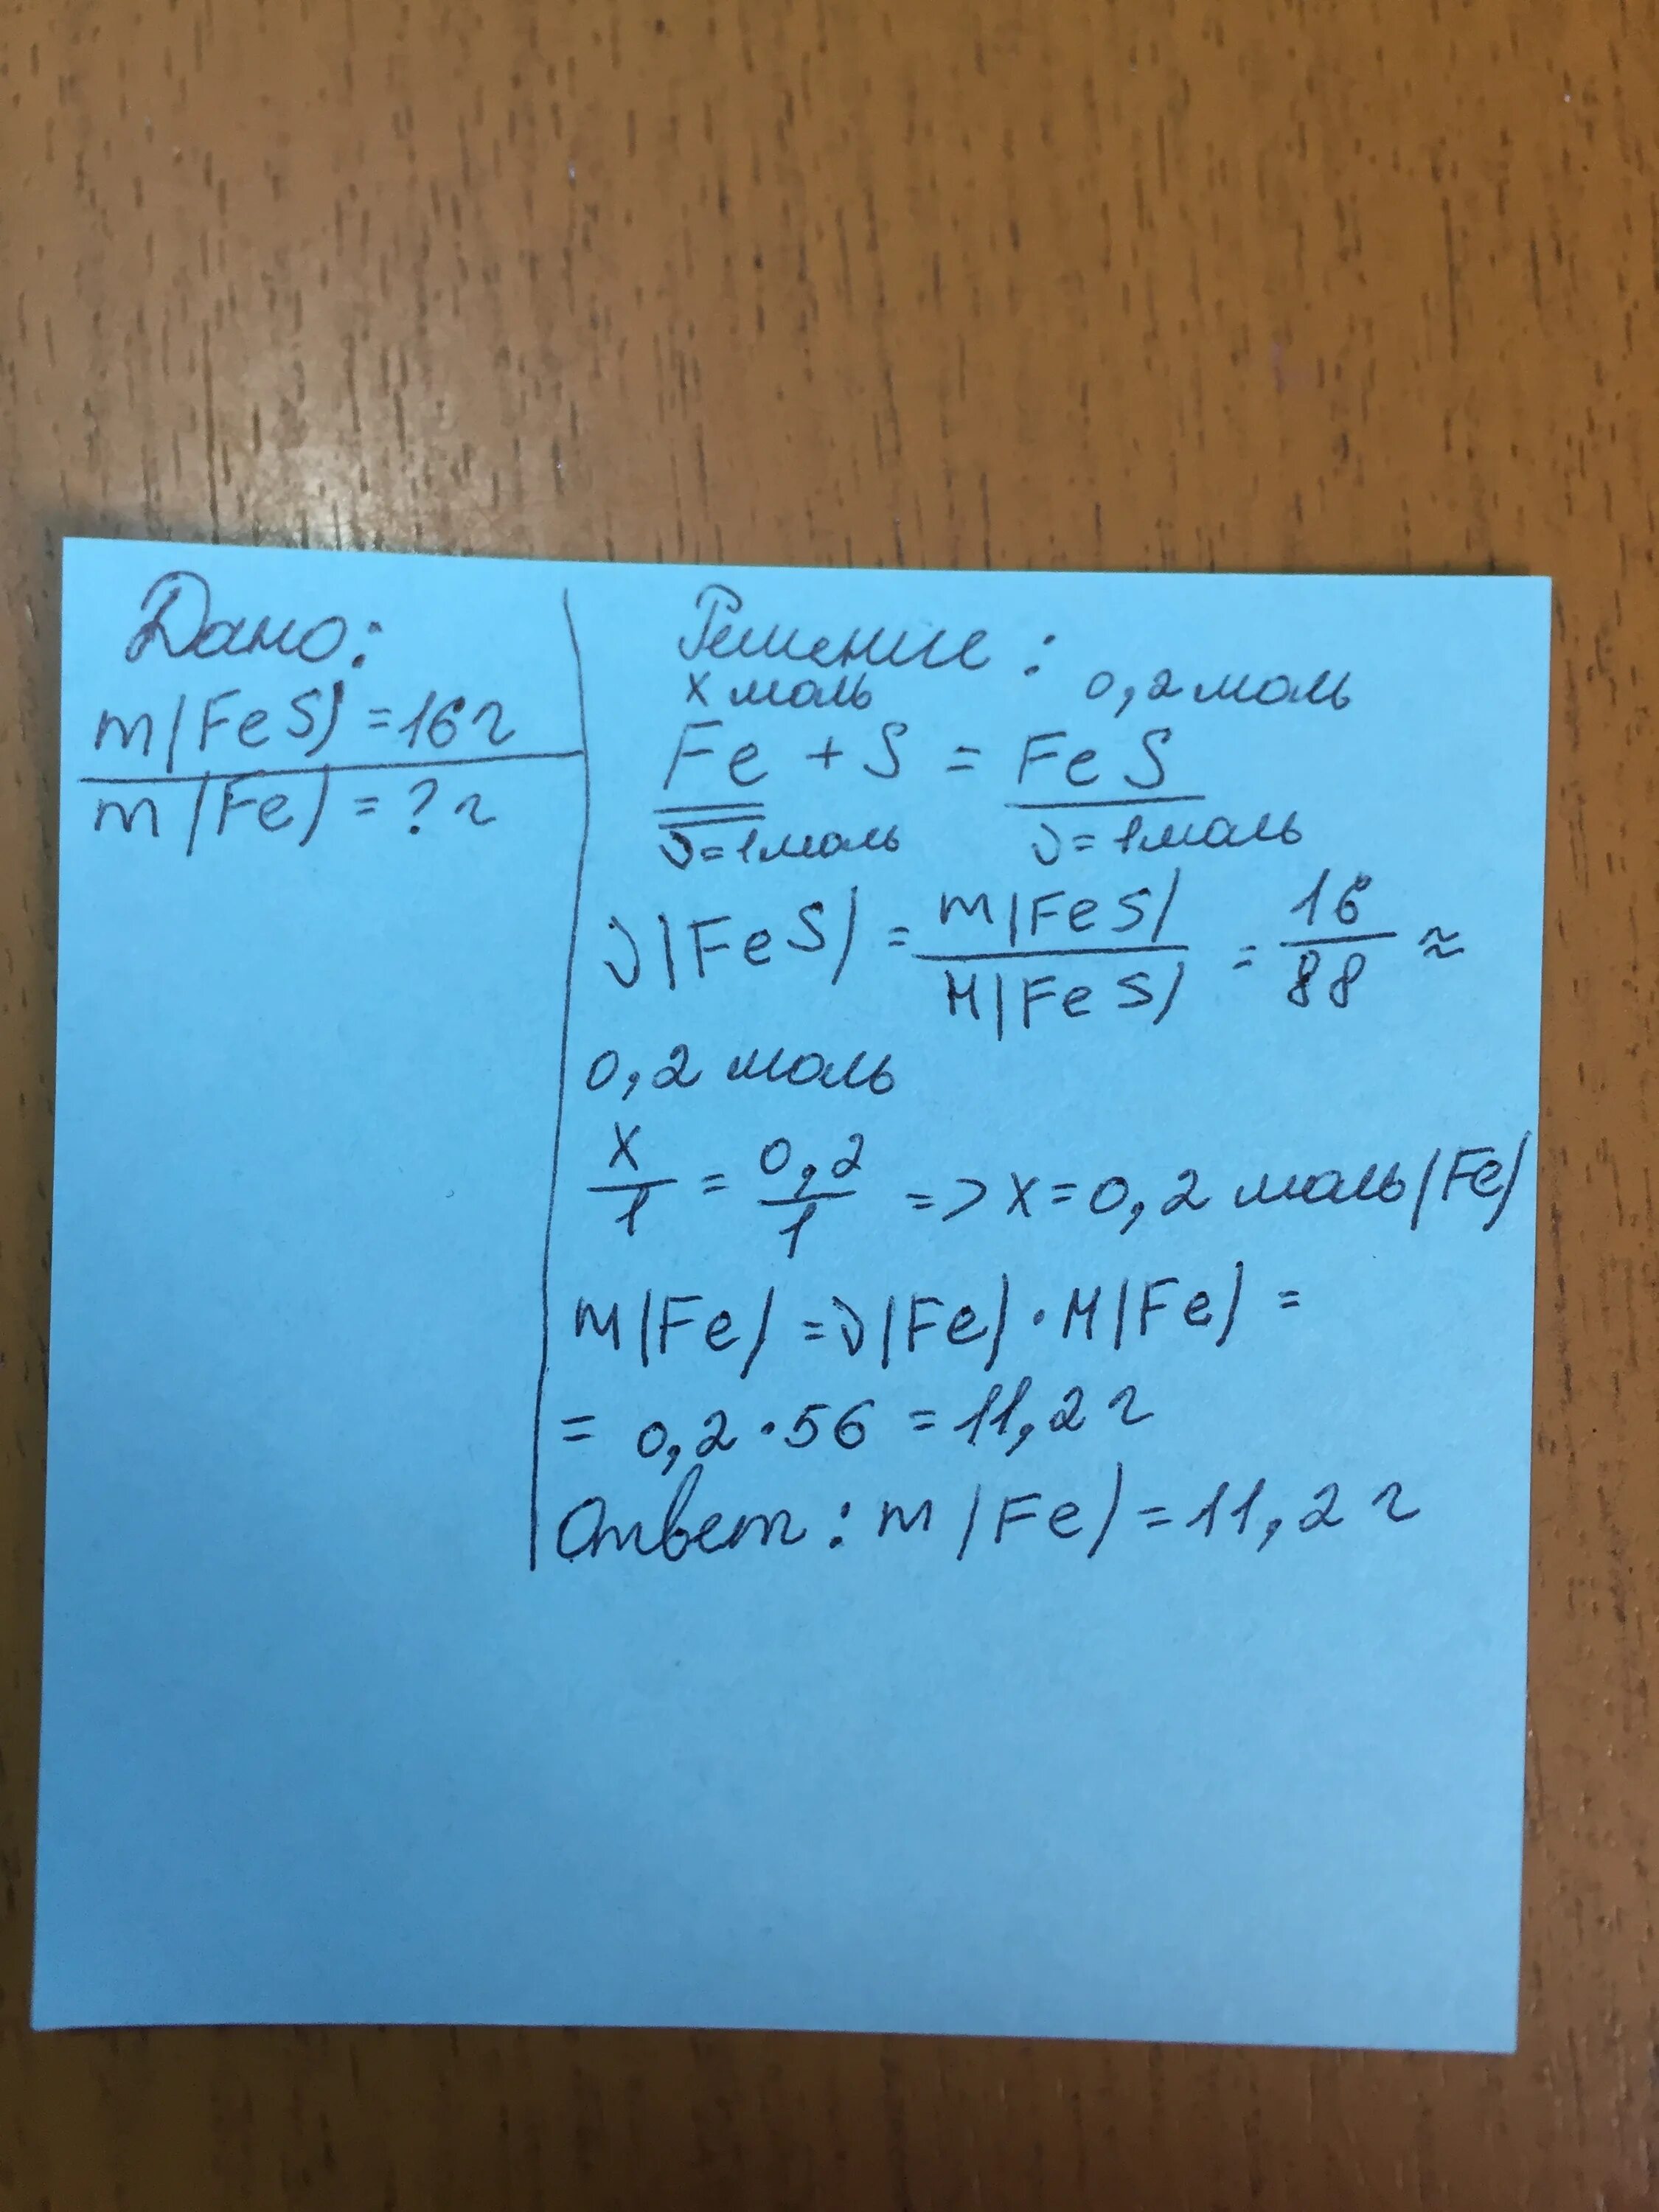 Дано:
m(FeS) = 16 г
m(Fe) = ? г
Решение:
x моль 0,2 моль
Fe + S = FeS
ν = 1 моль ν = 1 моль
ν(FeS) = m(FeS) / M(FeS) = 16 / 88 ≈
0,2 моль
x/1 = 0,2/1 => x = 0,2 моль (Fe)
m(Fe) = ν(Fe) · M(Fe) =
= 0,2 · 56 = 11,2 г
Ответ: m(Fe) = 11,2 г